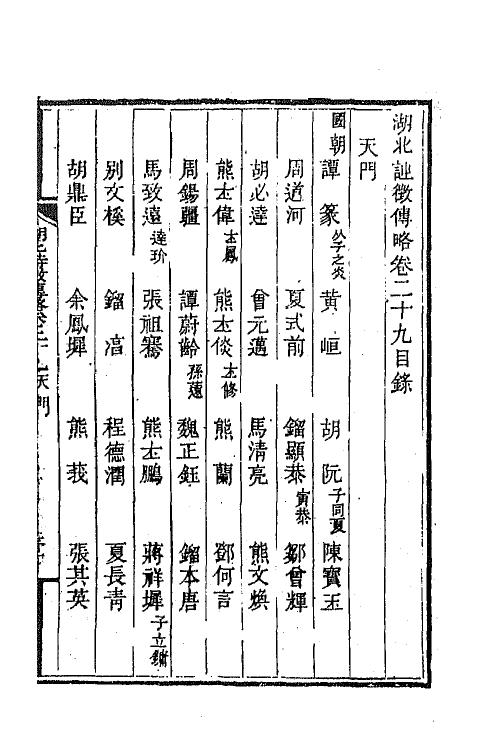 湖北詩徵傳略卷二十九目錄
天門
國朝譚篆父子之炎 黃垣 胡阮子同夏 陳寶玉
周道河 夏式前 鎦顯恭寅恭 鄒曾輝
胡必達 曾元邁 馬清亮 熊文煥
熊士偉士鳳 熊士倓士修 熊蘭 鄧何言
周錫疆 譚蔚齡孫蓮 魏正鈺 鎦本唐
馬致遠達玠 張祖騫 熊士鵬 蔣祥墀子立鏞
別文榽 鎦湻 程德潤 夏長青
胡鼎臣 余鳳墀 熊莪 張其英